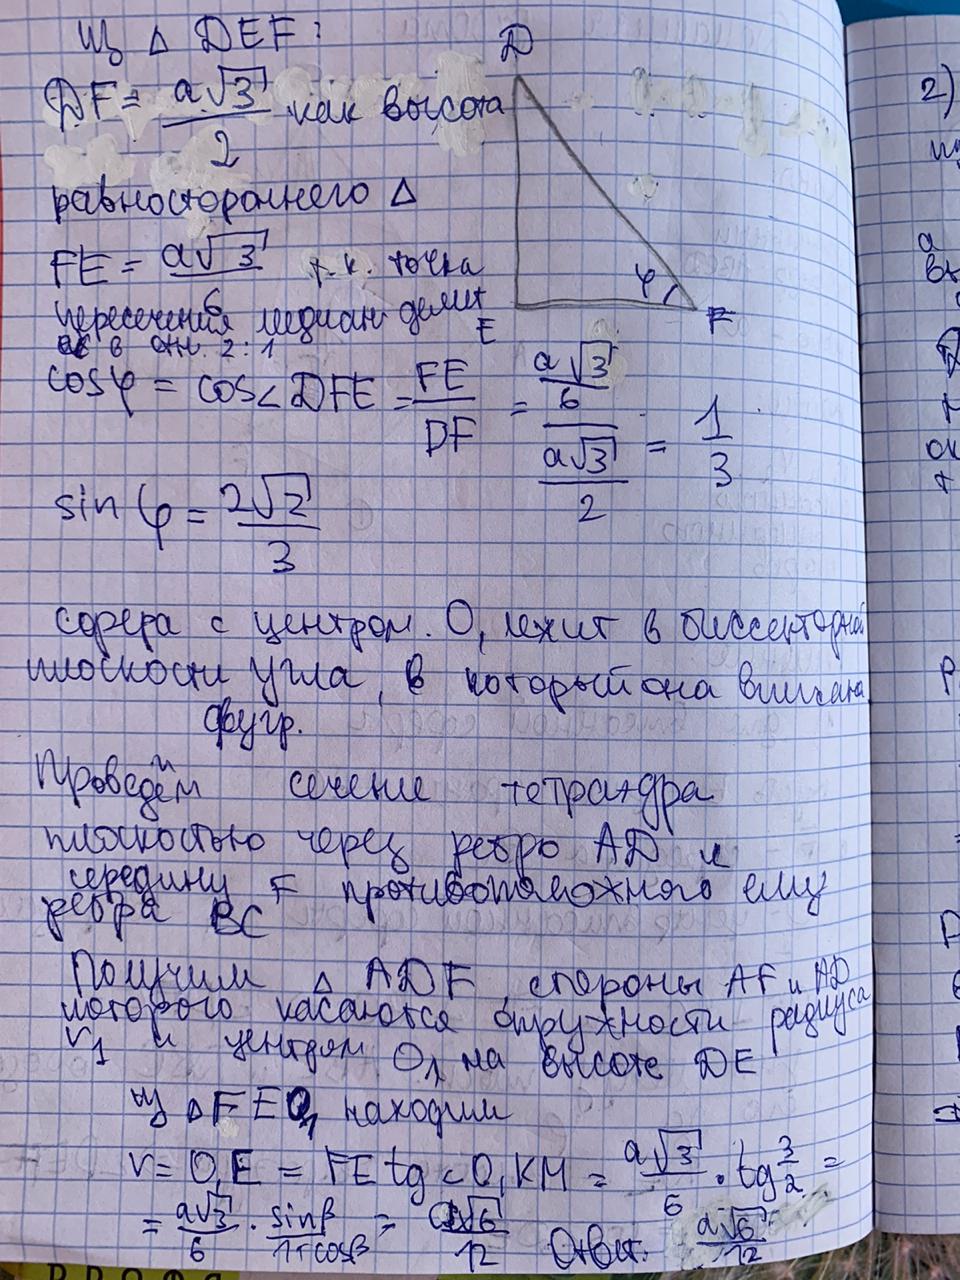 из △ DEF:
D
DF = a√3/2 как высота
равностороннего △
FE = a√3/6 т.к. точка
пересечения медиан делит
их в отн. 2:1
E
φ
F
cosφ = cos∠DFE = FE/DF = (a√3/6)/(a√3/2) = 1/3
sin φ = 2√2/3
сфера с центром O₁ лежит в биссекторной
плоскости угла, в который она вписана
двугр.
Проведём сечение тетраэдра
плоскостью через ребро AD и
середину F противоположного ему
ребра BC
Получим △ ADF, стороны AF и AD
которого касаются окружности радиуса
r₁ и центром O₁ на высоте DE
из △FEO₁ находим
r = O₁E = FE tg∠O₁KM = a√3/6 · tg 3/2 =
= a√3/6 · sinβ/1+cosβ = a√6/12 Ответ: a√6/12
2)